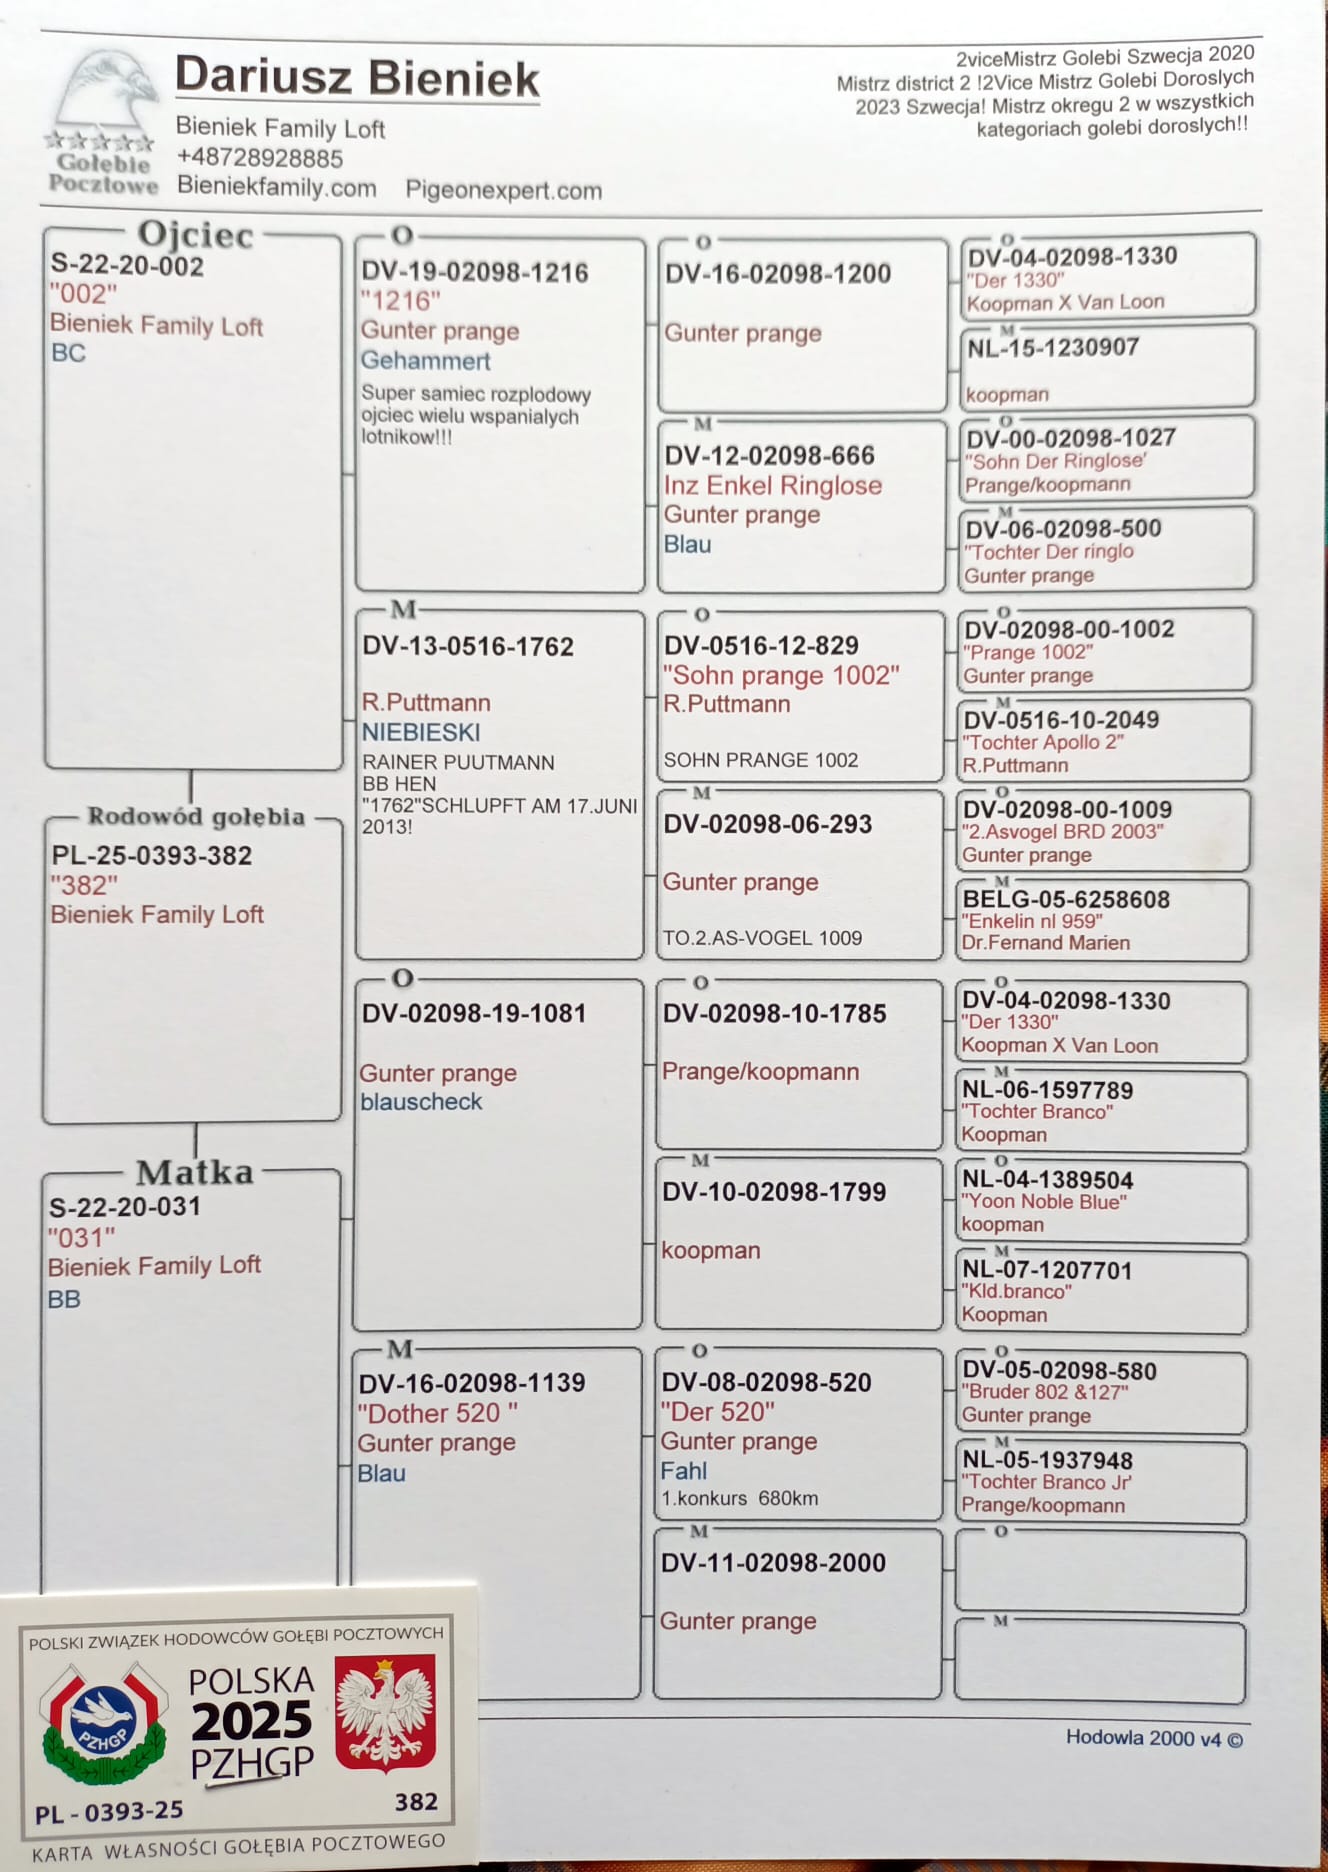 Dariusz Bieniek
Bieniek Family Loft
+48728928885
Bieniekfamily.com Pigeonexpert.com
Gołębie
Pocztowe
2viceMistrz Golebi Szwecja 2020
Mistrz district 2 !2Vice Mistrz Golebi Doroslych
2023 Szwecja! Mistrz okregu 2 w wszystkich
kategoriach golebi doroslych!!
Ojciec
S-22-20-002
"002"
Bieniek Family Loft
BC
Rodowód gołębia
PL-25-0393-382
"382"
Bieniek Family Loft
Matka
S-22-20-031
"031"
Bieniek Family Loft
BB
O
DV-19-02098-1216
"1216"
Gunter prange
Gehammert
Super samiec rozplodowy
ojciec wielu wspanialych
lotnikow!!!
M
DV-13-0516-1762
R.Puttmann
NIEBIESKI
RAINER PUUTMANN
BB HEN
"1762"SCHLUPFT AM 17.JUNI
2013!
O
DV-02098-19-1081
Gunter prange
blauscheck
M
DV-16-02098-1139
"Dother 520 "
Gunter prange
Blau
O
DV-16-02098-1200
Gunter prange
M
DV-12-02098-666
Inz Enkel Ringlose
Gunter prange
Blau
O
DV-0516-12-829
"Sohn prange 1002"
R.Puttmann
SOHN PRANGE 1002
M
DV-02098-06-293
Gunter prange
TO.2.AS-VOGEL 1009
O
DV-02098-10-1785
Prange/koopmann
M
DV-10-02098-1799
koopman
O
DV-08-02098-520
"Der 520"
Gunter prange
Fahl
1.konkurs 680km
M
DV-11-02098-2000
Gunter prange
O
DV-04-02098-1330
"Der 1330"
Koopman X Van Loon
M
NL-15-1230907
koopman
O
DV-00-02098-1027
"Sohn Der Ringlose'
Prange/koopmann
M
DV-06-02098-500
"Tochter Der ringlo
Gunter prange
O
DV-02098-00-1002
"Prange 1002"
Gunter prange
M
DV-0516-10-2049
"Tochter Apollo 2"
R.Puttmann
O
DV-02098-00-1009
"2.Asvogel BRD 2003"
Gunter prange
M
BELG-05-6258608
"Enkelin nl 959"
Dr.Fernand Marien
O
DV-04-02098-1330
"Der 1330"
Koopman X Van Loon
M
NL-06-1597789
"Tochter Branco"
Koopman
O
NL-04-1389504
"Yoon Noble Blue"
koopman
M
NL-07-1207701
"Kld.branco"
Koopman
O
DV-05-02098-580
"Bruder 802 &127"
Gunter prange
M
NL-05-1937948
"Tochter Branco Jr'
Prange/koopmann
O
M
Hodowla 2000 v4 ©
POLSKI ZWIĄZEK HODOWCÓW GOŁĘBI POCZTOWYCH
PZHGP
POLSKA
2025
PZHGP
PL - 0393-25
382
KARTA WŁASNOŚCI GOŁĘBIA POCZTOWEGO